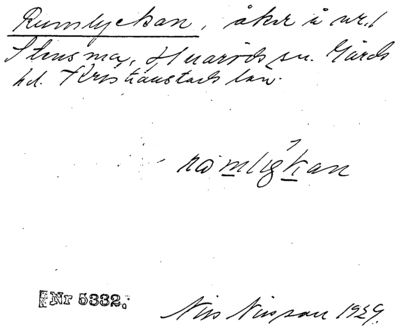 Rumlyckan, åker å nr. 1
Stensma, Huaröds sn. Gärds
hd. Kristianstads län.
romlighan
Nr 5332.
Nils Nilsson 1929.